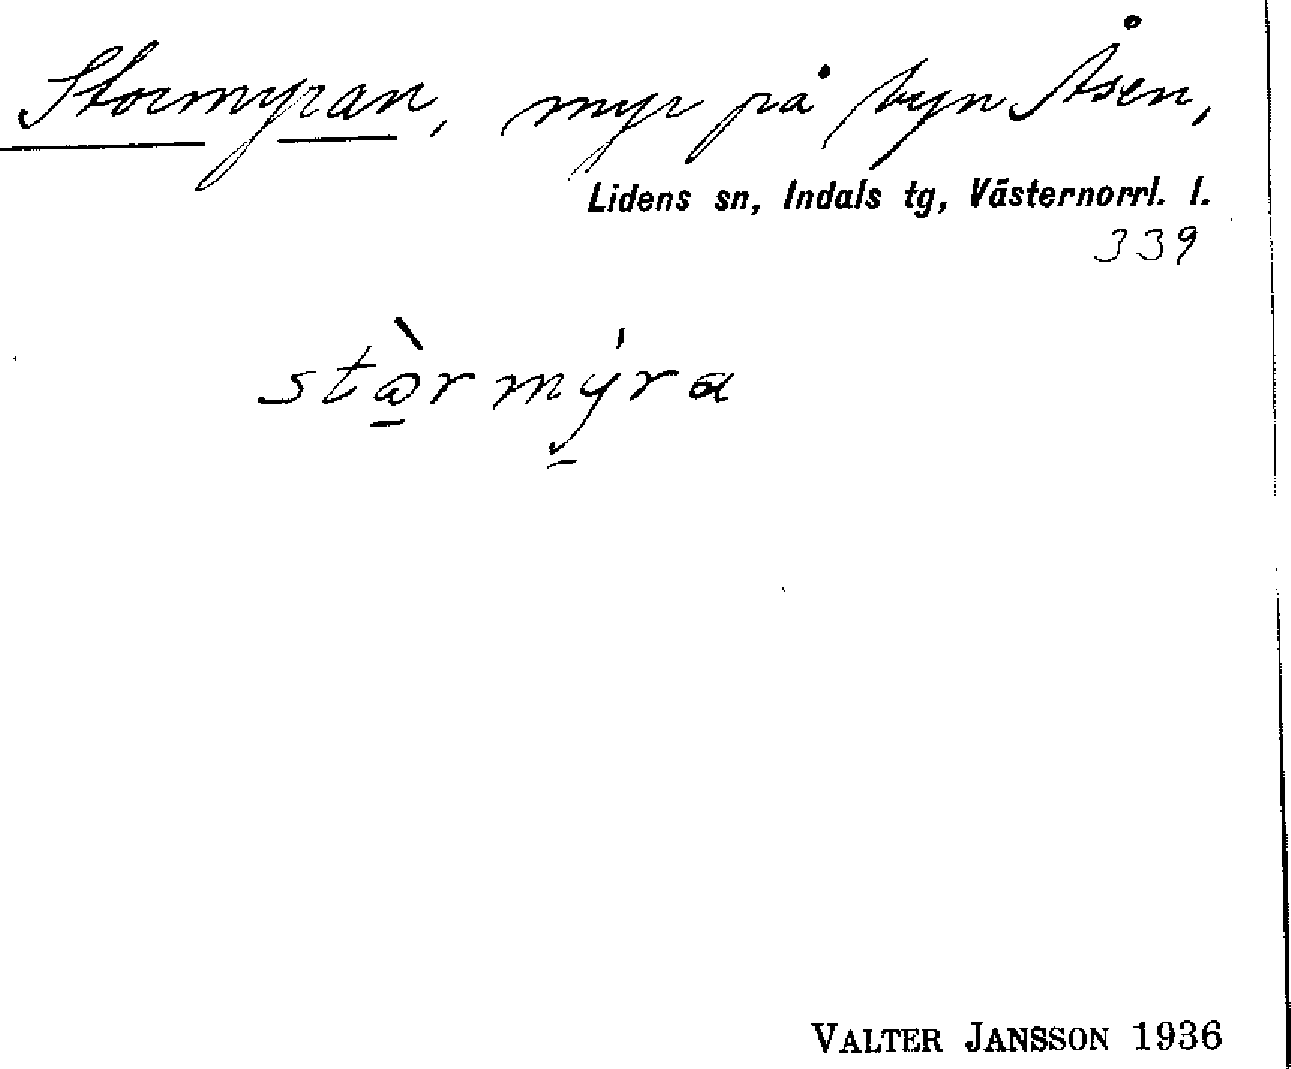 Stormyran, myr på byn Åsen,
Lidens sn, Indals tg, Västernorrl. l.
339
stὼ̲rmý̲ra
VALTER JANSSON 1936